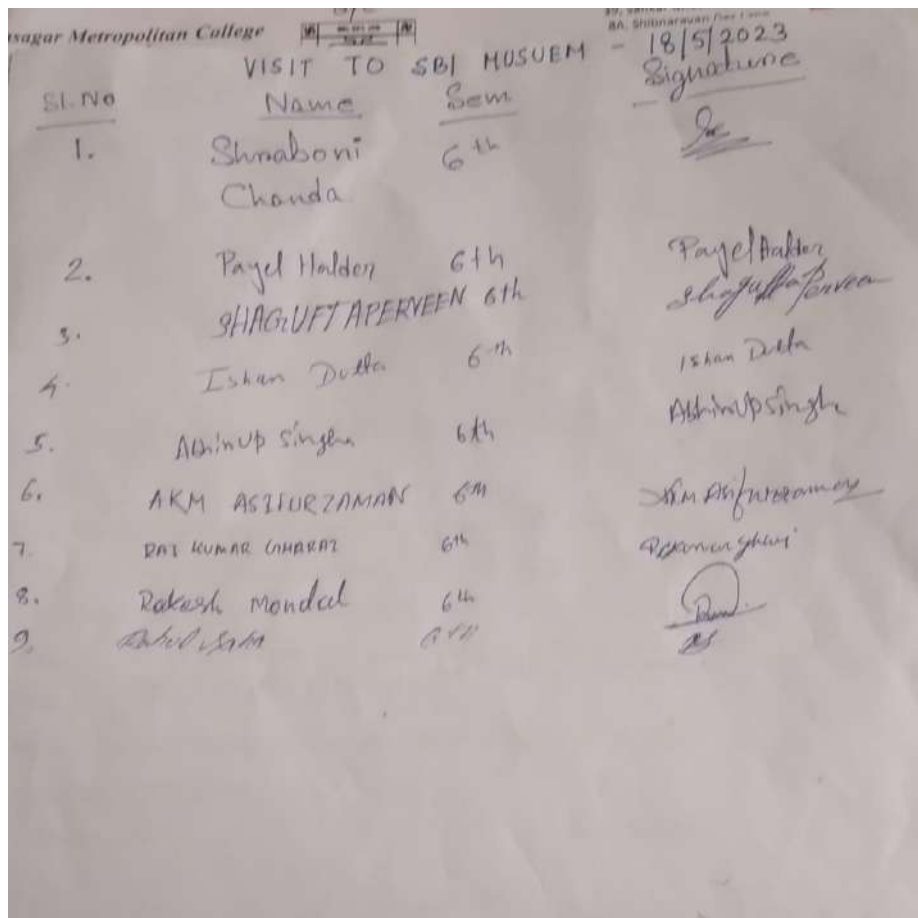 sagar Metropolitan College
8A, Shibnarayan Das Lane
VISIT TO SBI MUSUEM - 18/5/2023
Sl. No Name Sem Signature
1. Shraboni 6th
Chanda
2. Payel Halder 6th Payel Halder
3. SHAGUFTA PERVEEN 6th Shagufta Perveen
4. Ishan Dutta 6th Ishan Dutta
5. Abhirup Singha 6th Abhirup Singha
6. AKM ASIFURZAMAN 6th AKM Asifurzaman
7. RAJ KUMAR GHARAI 6th
8. Rakesh Mondal 6th
9. Rahul Saha 6th